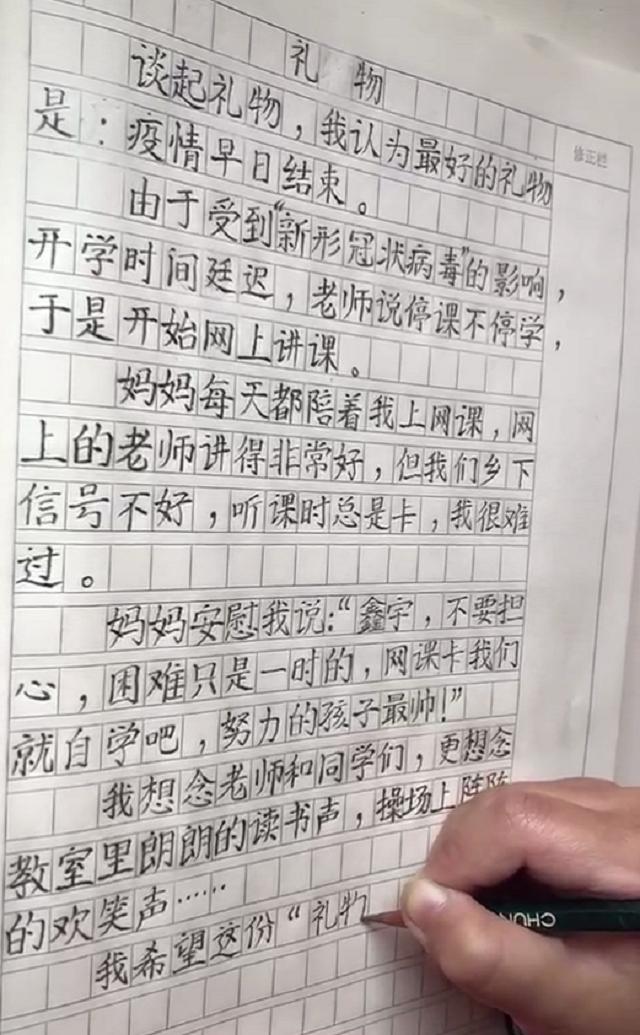 礼 物
谈起礼物，我认为最好的礼物
是：疫情早日结束。
由于受到“新形冠状病毒”的影响，
开学时间廷迟，老师说停课不停学，
于是开始网上讲课。
妈妈每天都陪着我上网课，网
上的老师讲得非常好，但我们乡下
信号不好，听课时总是卡，我很难
过。
妈妈安慰我说：“鑫宇，不要担
心，困难只是一时的，网课卡我们
就自学吧，努力的孩子最帅！”
我想念老师和同学们，更想念
教室里朗朗的读书声，操场上阵阵
的欢笑声……
我希望这份“礼物
修正栏
CHUN